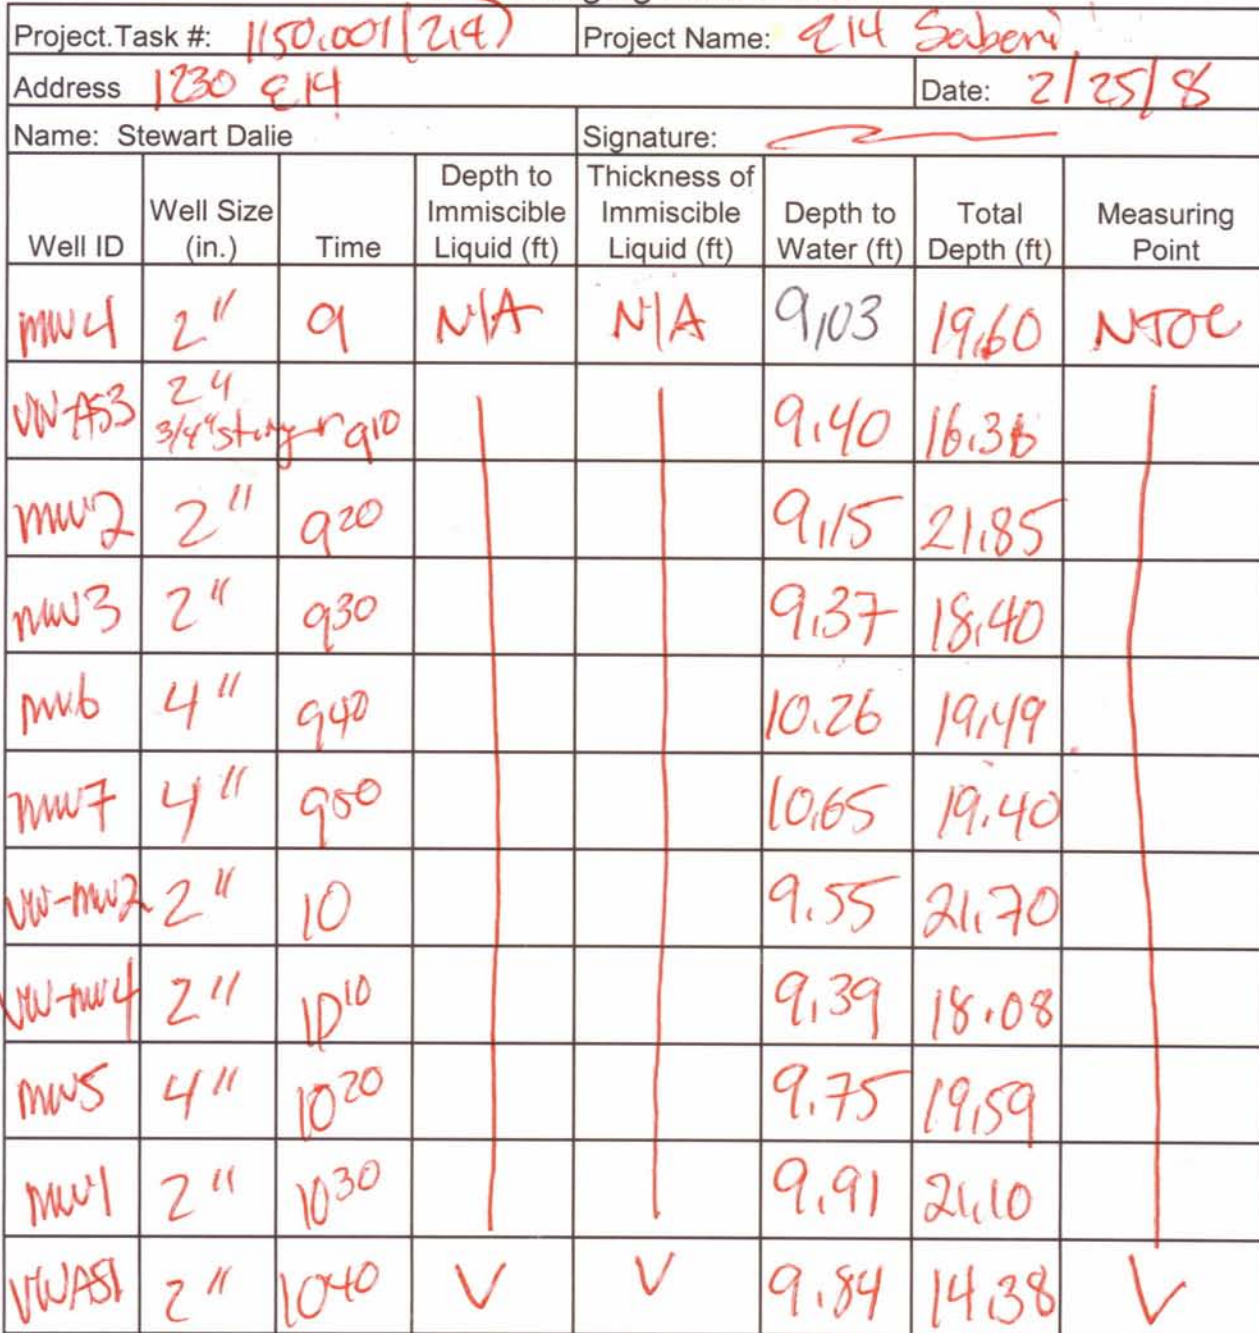 Project.Task #: 1150.001(214) Project Name: E14 Saberi
Address 1230 E14 Date: 2/25/8
Name: Stewart Dalie Signature:
Well ID Well Size (in.) Time Depth to Immiscible Liquid (ft) Thickness of Immiscible Liquid (ft) Depth to Water (ft) Total Depth (ft) Measuring Point
MW4 2" 9 N/A N/A 9.03 19.60 NTOC
VW-AS3 2" 3/4" stinger 910 9.40 16.36
MW2 2" 920 9.15 21.85
MW3 2" 930 9.37 18.40
MW6 4" 940 10.26 19.49
MW7 4" 950 10.65 19.40
VW-MW2 2" 10 9.55 21.70
VW-MW4 2" 1010 9.39 18.08
MW5 4" 1020 9.75 19.59
MW1 2" 1030 9.91 21.10
VWAS1 2" 1040 9.84 14.38